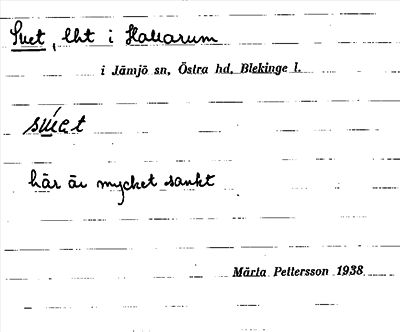 Suet, lht i Hallarum
i Jämjö sn, Östra hd, Blekinge l.
súet
här är mycket sankt
Märta Pettersson 1938